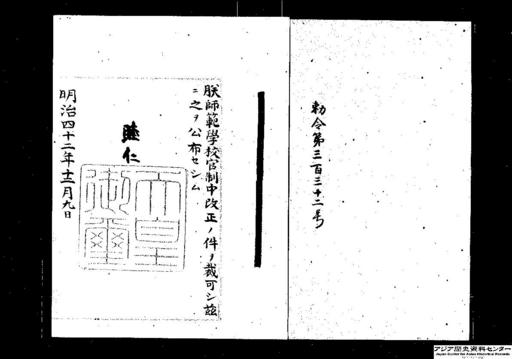 勅令第三百三十二号
朕師範學校官制中改正ノ件ヲ裁可シ茲
ニ之ヲ公布セシム
睦仁
天皇
御璽
明治四十二年十二月九日
アジア歴史資料センター
Japan Center for Asian Historical Records